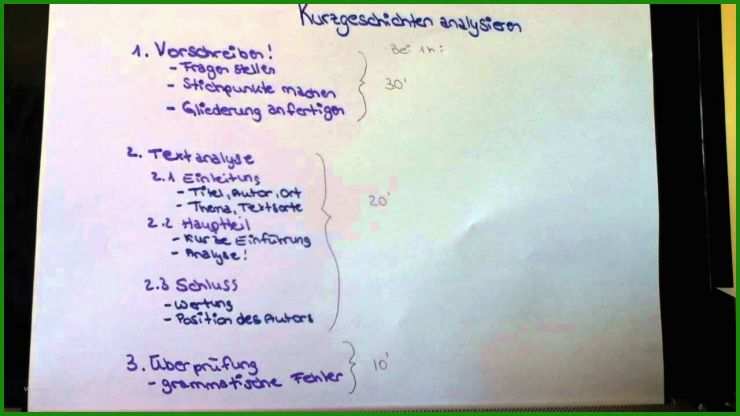 Kurzgeschichten analysieren
Bei 1h:
1. Vorschreiben!
- Fragen stellen
- Stichpunkte machen
- Gliederung anfertigen
30'
2. Textanalyse
2.1 Einleitung
- Titel, Autor, Ort
- Thema, Textsorte
2.2 Hauptteil
- Kurze Einführung
- Analyse!
20'
2.3 Schluss
- Wertung
- Position des Autors
3. Überprüfung
- grammatische Fehler
10'